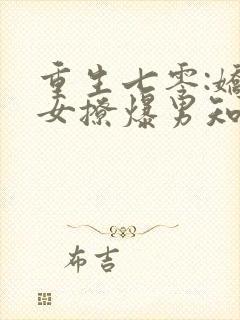 重生七零:娇
女撩爆男知
布吉